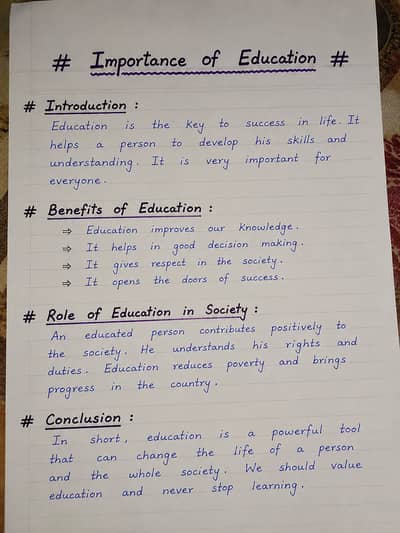 # Importance of Education #
# Introduction :
Education is the key to success in life. It
helps a person to develop his skills and
understanding. It is very important for
everyone.
# Benefits of Education :
⇒ Education improves our knowledge.
⇒ It helps in good decision making.
⇒ It gives respect in the society.
⇒ It opens the doors of success.
# Role of Education in Society :
An educated person contributes positively to
the society. He understands his rights and
duties. Education reduces poverty and brings
progress in the country.
# Conclusion :
In short, education is a powerful tool
that can change the life of a person
and the whole society. We should value
education and never stop learning.